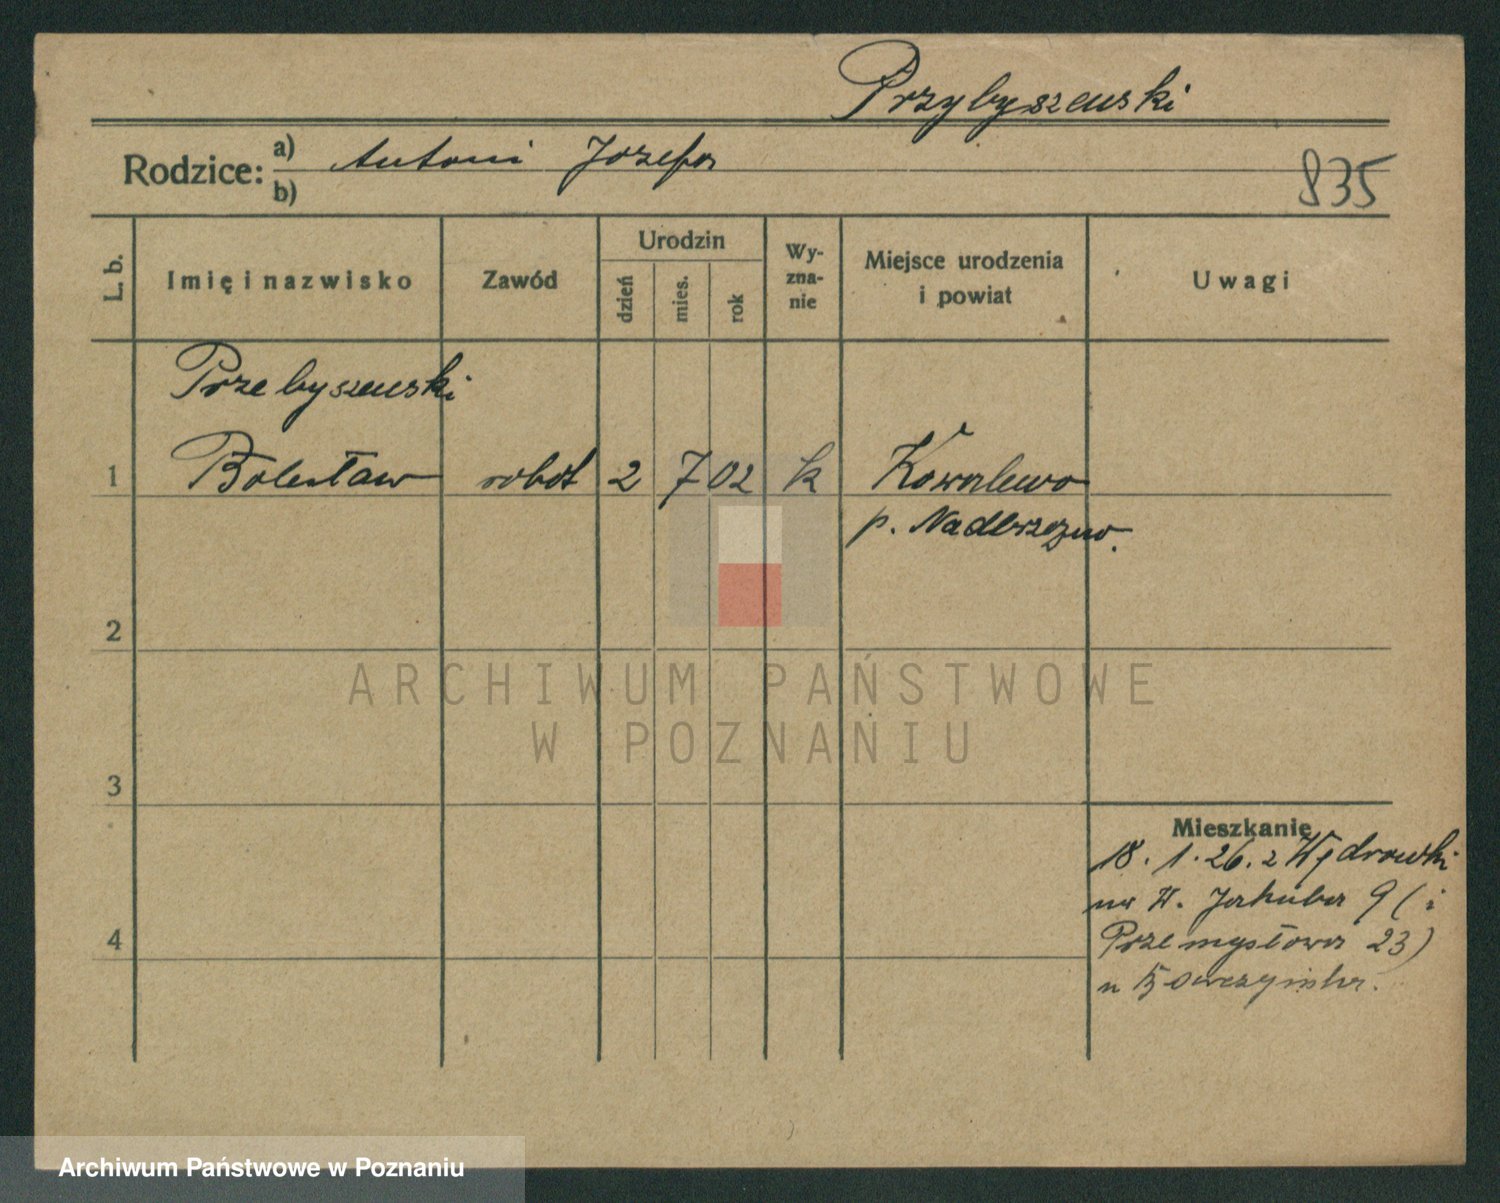 Przybyszewski
Rodzice: a) Antoni Józefa
b)
835
L. b. Imię i nazwisko Zawód Urodzin dzień mies. rok Wy-zna-nie Miejsce urodzenia i powiat Uwagi
Przebyszewski
1 Bolesław robot 2 7 02 k Kowalewo
p.
2
ARCHIWUM PAŃSTWOWE
W POZNANIU
3
Mieszkanie
18. 1. 26. z
Jakuba 9 (i
4 Przemysłowa 23)
Archiwum Państwowe w Poznaniu